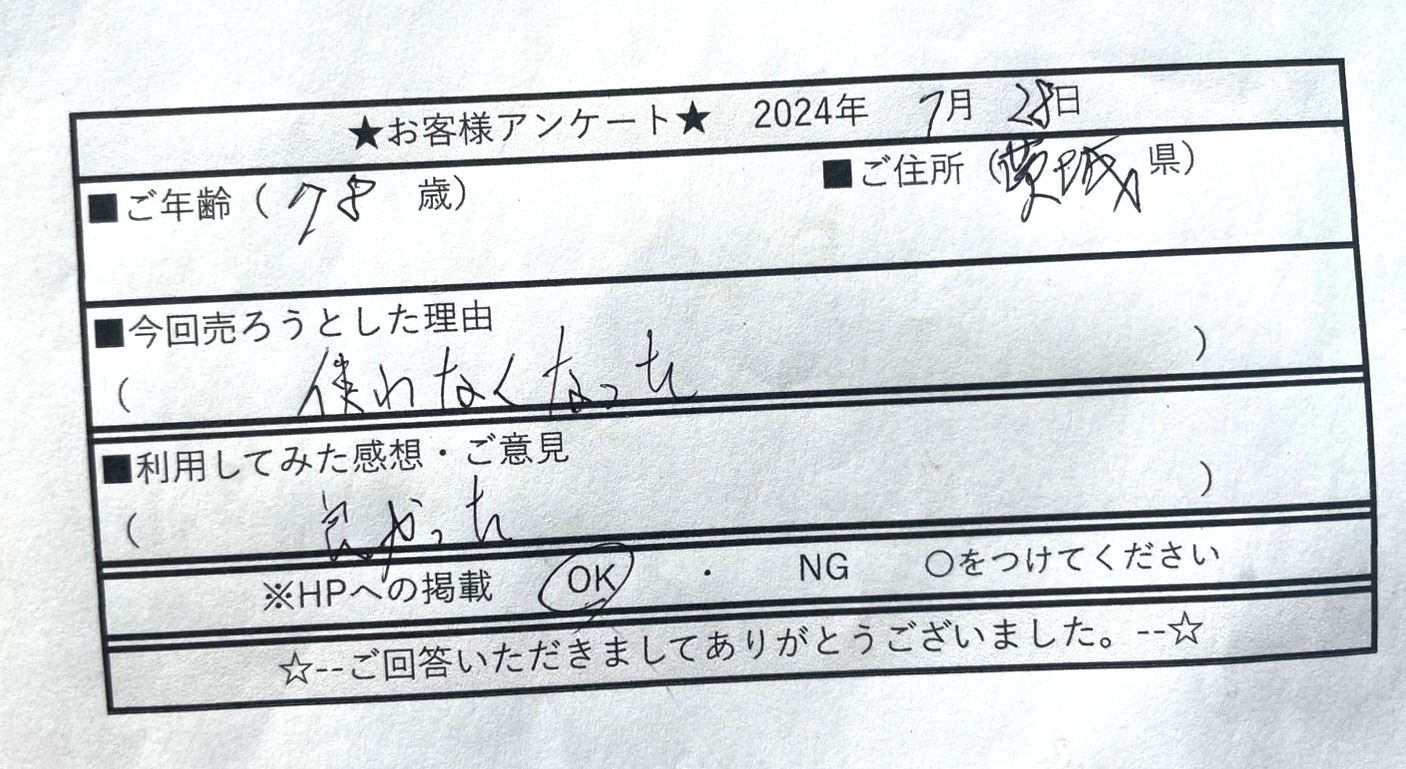 ★お客様アンケート★ 2024年 7月 28日
■ご年齢(78歳) ■ご住所(茨城県)
■今回売ろうとした理由
( 使わなくなった )
■利用してみた感想・ご意見
( 良かった )
※HPへの掲載 OK ・ NG ○をつけてください
☆--ご回答いただきましてありがとうございました。--☆